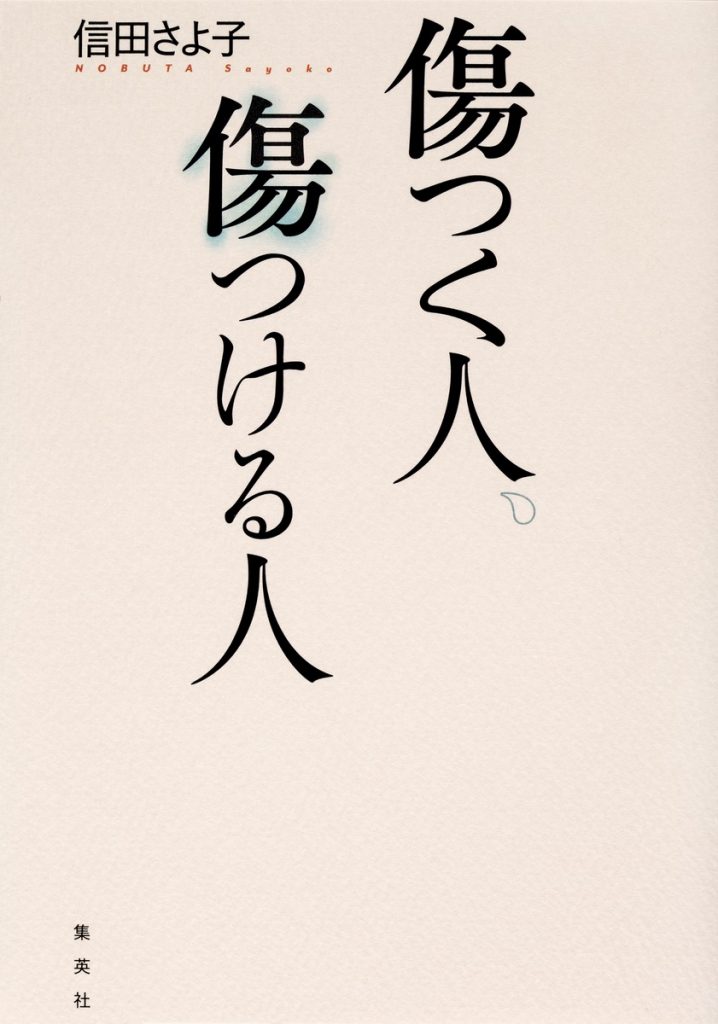 傷つく人、
傷つける人
信田さよ子
NOBUTA Sayoko
集英社